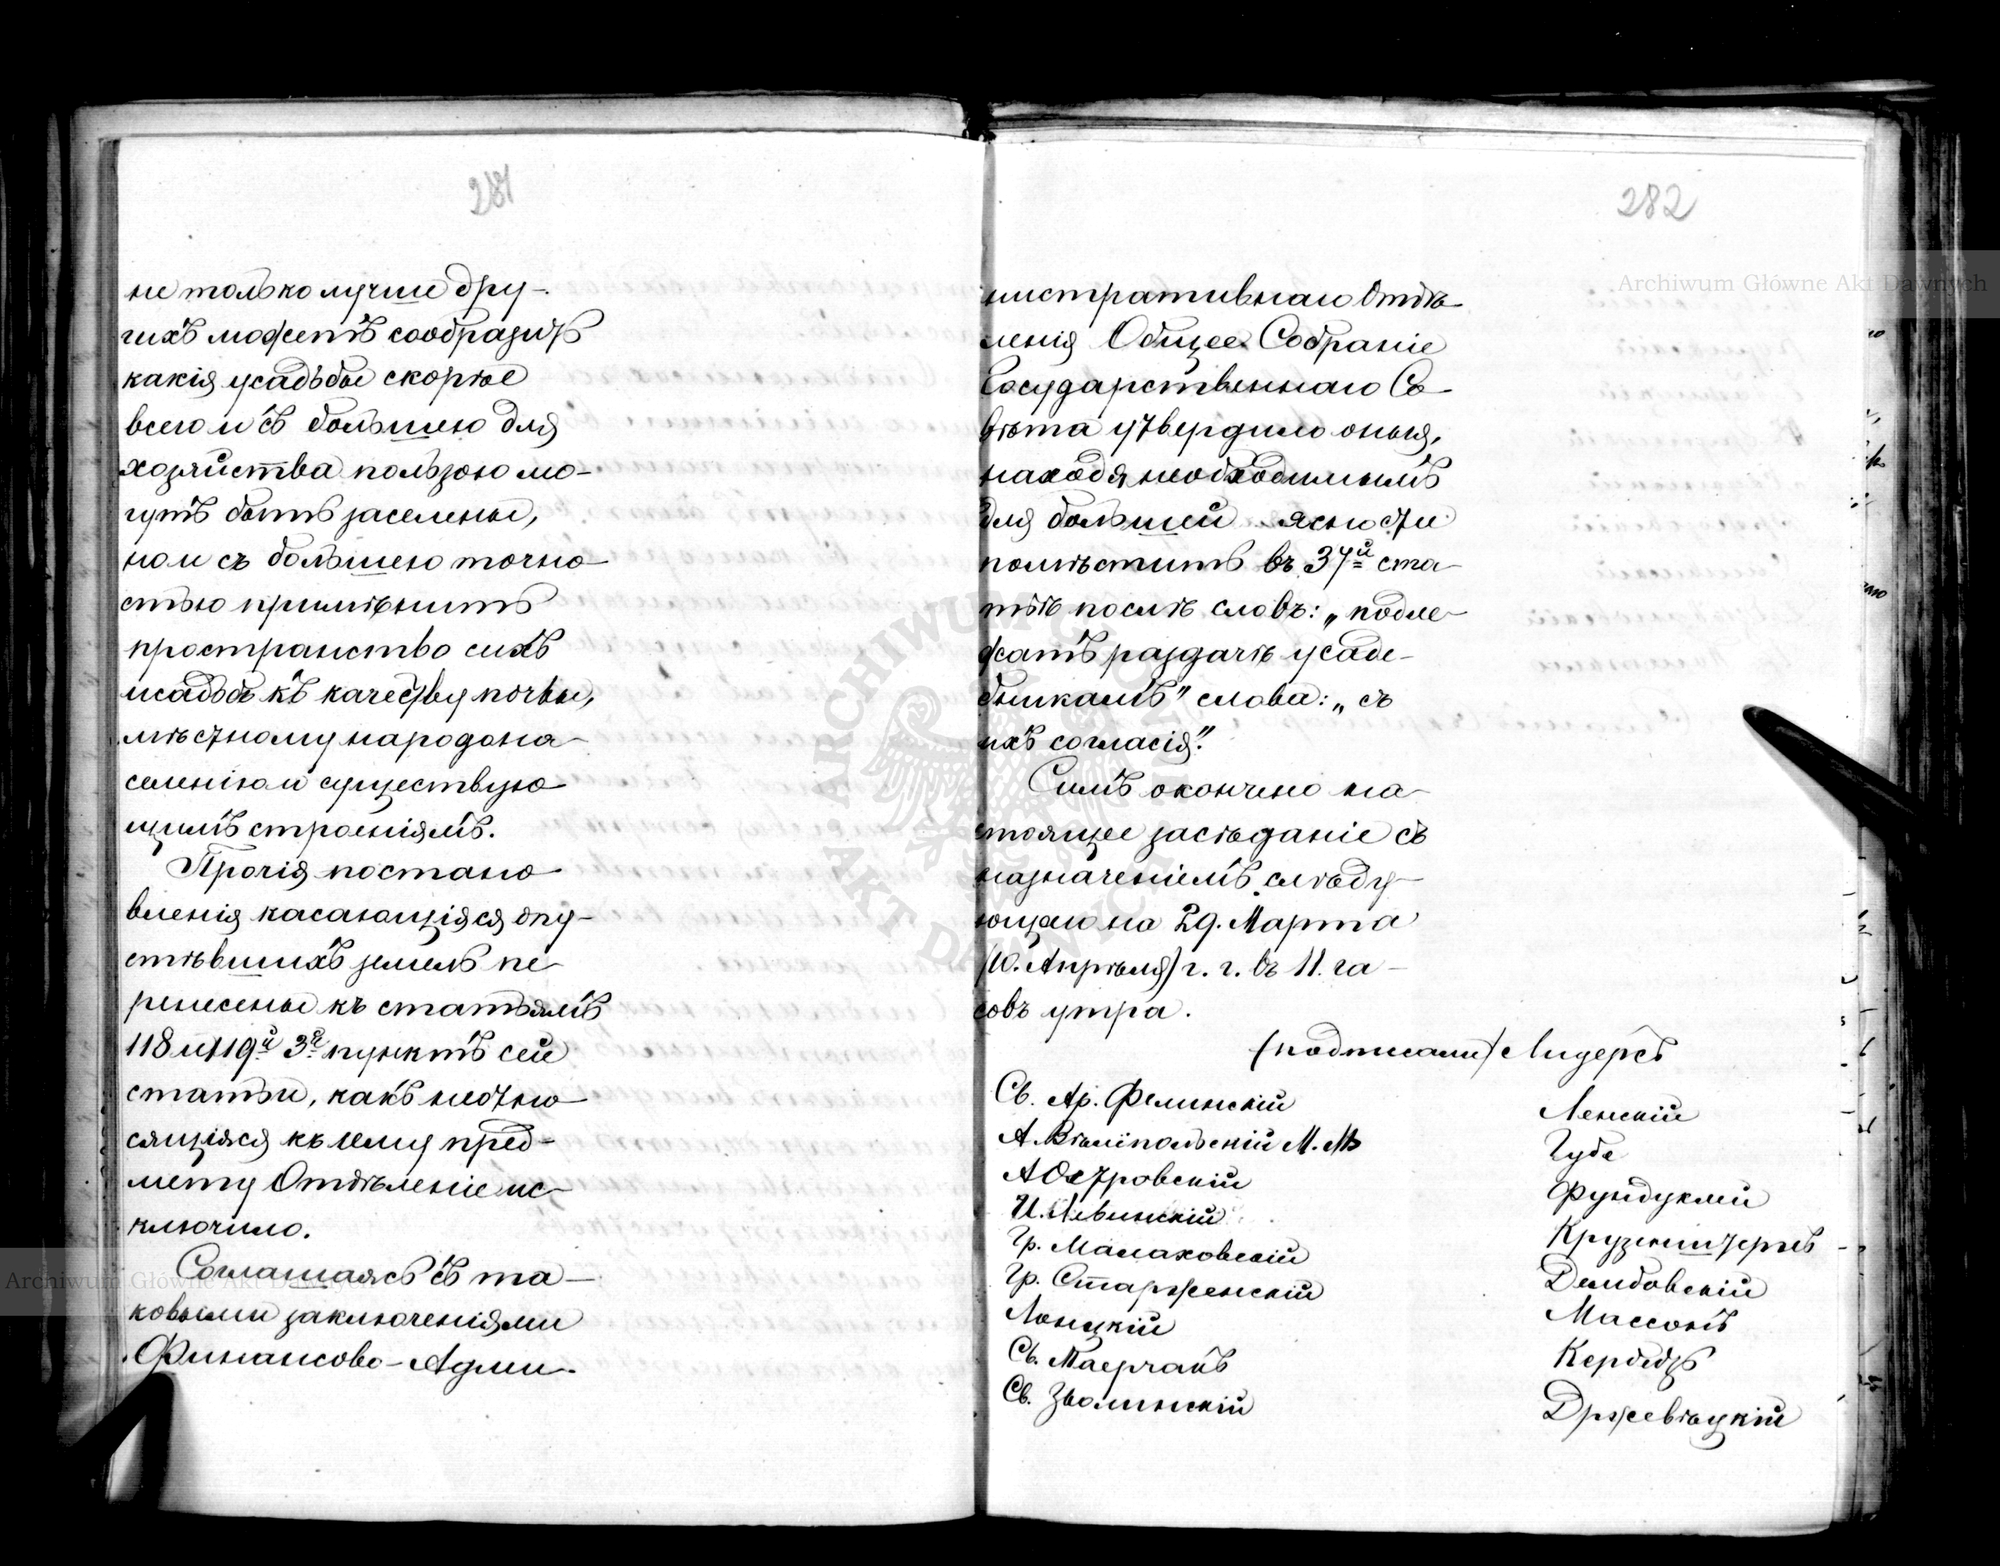 281
не только лучше дру-
гихъ можетъ сообразить
какія усадьбы скорѣе
всего и съ большею для
хозяйства пользою мо-
гутъ быть заселены,
но и съ большею точно-
стью примѣнить
пространство сихъ
усадьбъ къ качеству почвы,
мѣстному народона-
селенію и существую-
щимъ строеніямъ.
Прочія постано-
вленія касающіяся опу-
стѣвшихъ земель пе-
ренесены къ статьямъ
118 и 119й 3й пунктъ сей
статьи, какъ неотно-
сящіяся къ сему пред-
мету Отдѣленіе ис-
ключило.
Соглашаясь съ та-
ковыми заключеніями
Финансово-Адми-
282
нистративнаго Отдѣ-
ленія Общее Собраніе
Государственнаго Со-
вѣта утвердило оныя,
находя необходимымъ
для большей ясности
помѣстить въ 37й ста-
тьѣ послѣ словъ: „подле-
жатъ раздачѣ усадь-
бникамъ" слова: „съ
ихъ согласія".
Симъ окончено на-
стоящее засѣданіе съ
назначеніемъ слѣду-
ющаго на 29. Марта
(10. Апрѣля) т. г. въ 11. ча-
совъ утра.
(подписали) Лидерсъ
Св. Ар. Фелинскій
А. Вѣлiопольскій М. М.
А Островскій
И. Левинскій
Гр. Малаховскій
Гр. Старженскій
Лонцкій
Св. Маерчакъ
Св. Зволинскій
Ленскій
Губе
Фундуклей
Крузенштернъ
Дембовскій
Массонъ
Кербедзъ
Држевѣцкій
Archiwum Główne Akt Dawnych
Archiwum Główne Akt Dawnych
ARCHIWUM GŁÓWNE AKT DAWNYCH